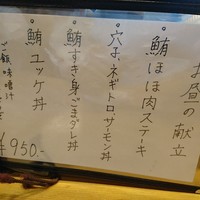 お昼の献立
・鮪ほほ肉ステーキ
・穴子、ネギトロ、サーモン丼
・鮪すき身ごまダレ丼
・鮪ユッケ丼
ご飯味噌汁
¥950.-